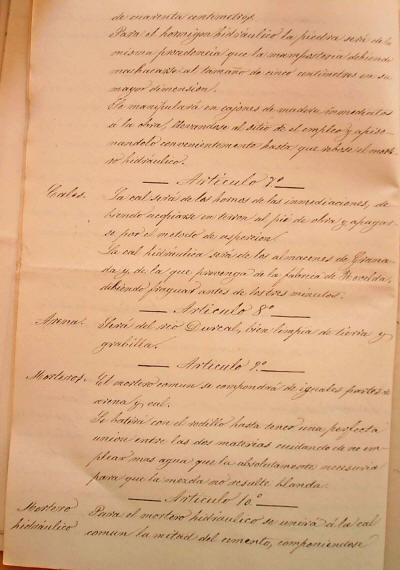 de cuarenta centimetros.
Para el hormigon hidráulico la piedra será de la
misma procedencia que la mamposteria debiendo
machacarse al tamaño de cinco centimetros en su
mayor dimension.
Se manipulará en cajones de madera inmediatos
á la obra, llevandose al sitio de el empleo y apiso-
nandolo convenientemente hasta que rebose el morte-
ro hidráulico.
Articulo 7º
Cales. La cal será de los hornos de las inmediaciones, de
biendo acopiarse en terron al pié de obra y apagar
se por el metodo de aspersion.
La cal hidráulica será de los almacenes de Grana-
da y de la que provenga de la fabrica de Novelda,
debiendo fraguar antes de los tres minutos.
Articulo 8º
Arena. Será del rio Durcal, bien limpia de tierra y
grabilla.
Articulo 9º
Morteros. El mortero comun se compondrá de iguales partes de
arena y cal.
Se batirá con el rodillo hasta tener una perfecta
union entre las dos materias cuidando de no em-
plear mas agua que la absolutamente necesaria
para que la mezcla no resulte blanda.
Articulo 10º
Mortero hidráulico Para el mortero hidráulico se unirá á la cal
comun la mitad del cemento, componiendose